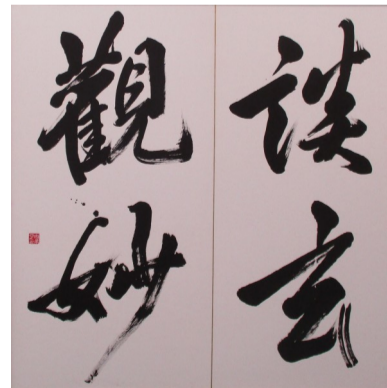 談玄
觀妙